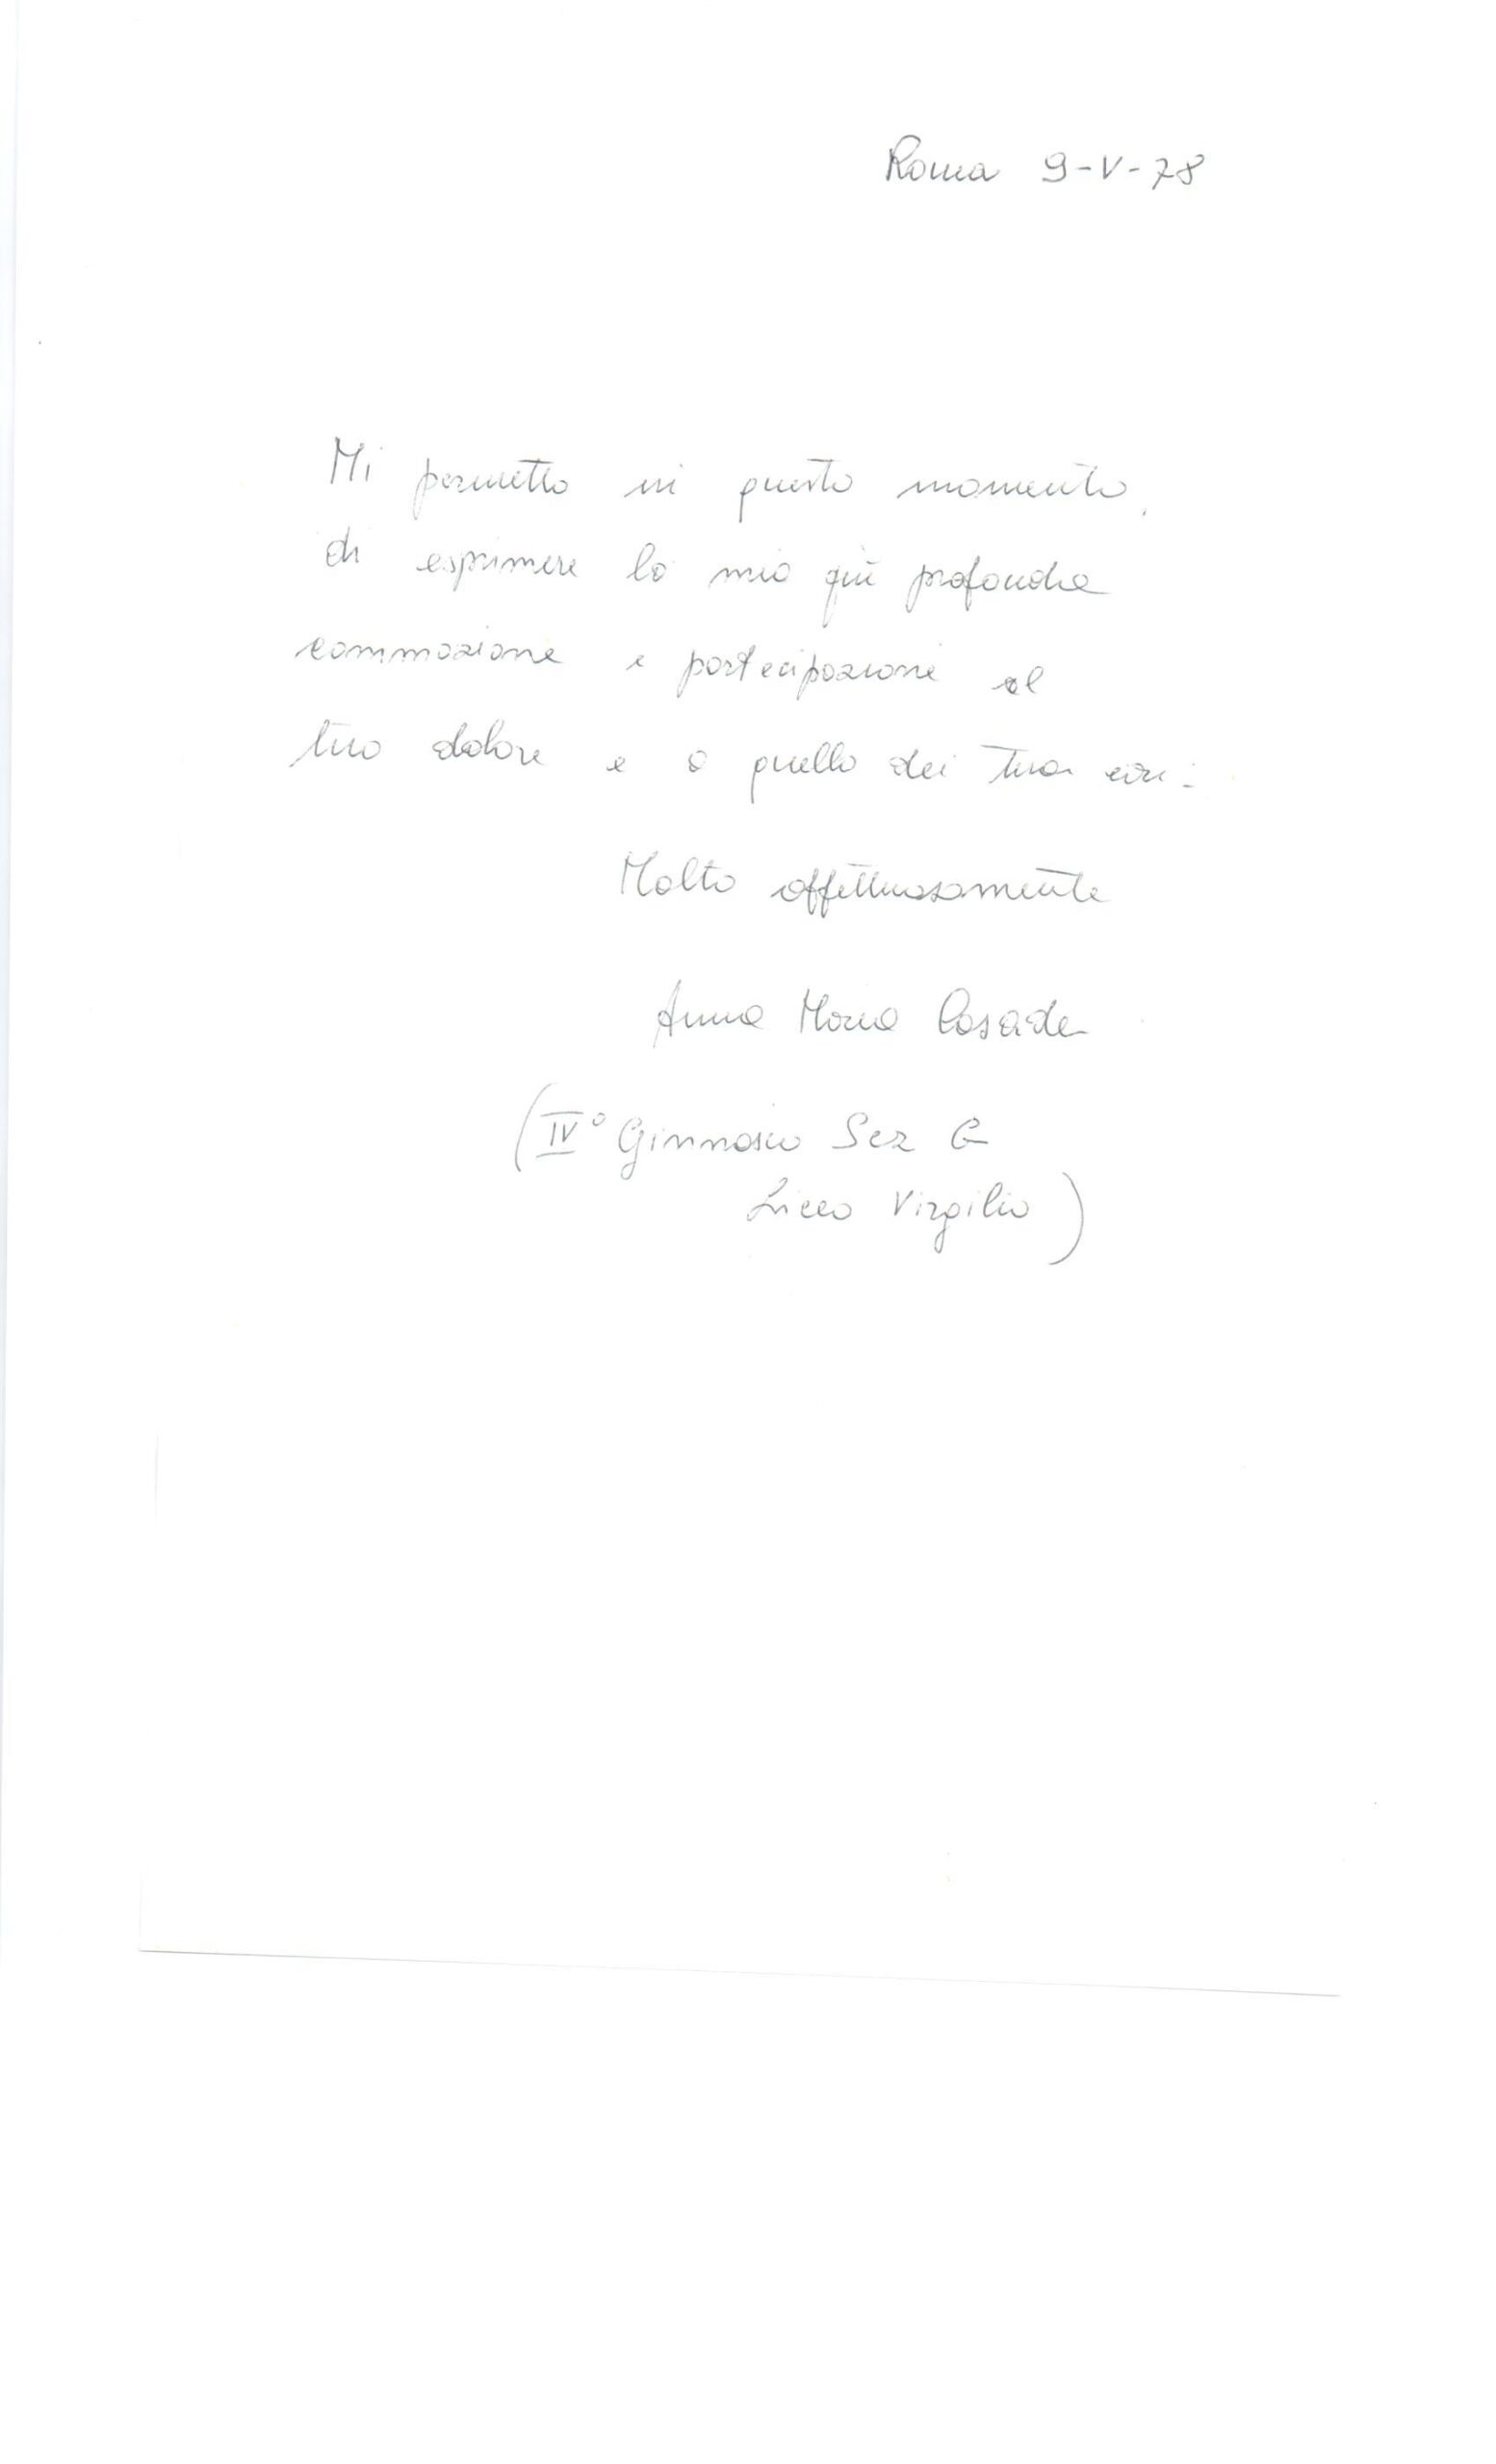 Roma 9-V-78
Mi permetto in questo momento,
di esprimere la mia più profonda
commozione e partecipazione al
tuo dolore e a quello dei tuoi cari.
Molto affettuosamente
Anna Maria Casadei
(IV° Ginnasio Sez G
Liceo Virgilio)